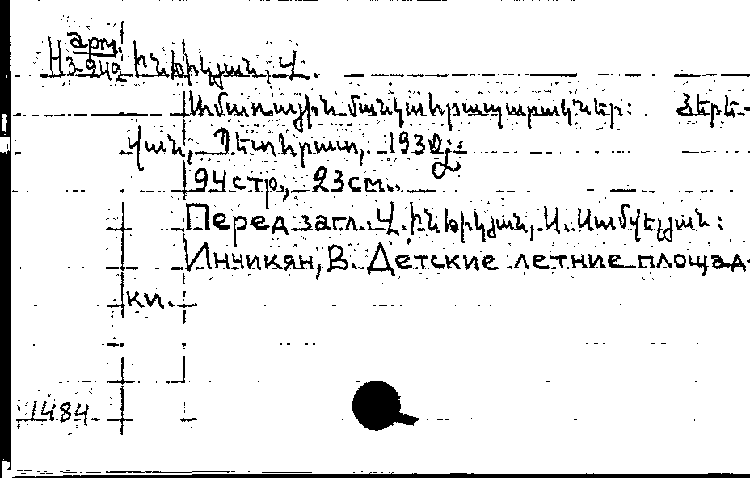 арм.
Н3-949 Ինխիկյան, Վ.
Ամառային մանկահրապարակներ: Յերե-
վան, Պետհրատ, 193
94 стр., 23см.
Перед загл. Վ. Ինխիկյան, Ա. Սամվելյան:
Инчикян, В. Детские летние площад-
ки.
1484